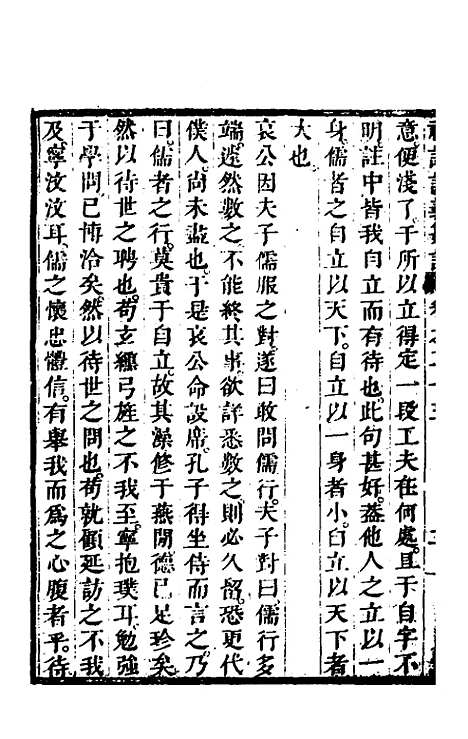 意便淺了于所以立得定一段工夫在何處且于自字不
明註中皆我自立而有待也此句甚好蓋他人之立以一
身儒者之自立以天下自立以一身者小自立以天下者
大也
哀公因夫子儒服之對遂曰敢問儒行夫子對曰儒行多
端遽然數之不能終其事欲詳悉數之則必久留恐更代
僕人尚未盡也于是哀公命設席孔子得坐侍而言之乃
曰儒者之行莫貴于自立故其澡修于燕閒德已足珍矣
然以待世之聘也苟玄纁弓旌之不我至寧抱璞耳勉強
于學問已博洽矣然以待世之問也苟就顧延訪之不我
及寧汶汶耳儒之懷忠體信有舉我而爲之心腹者乎待